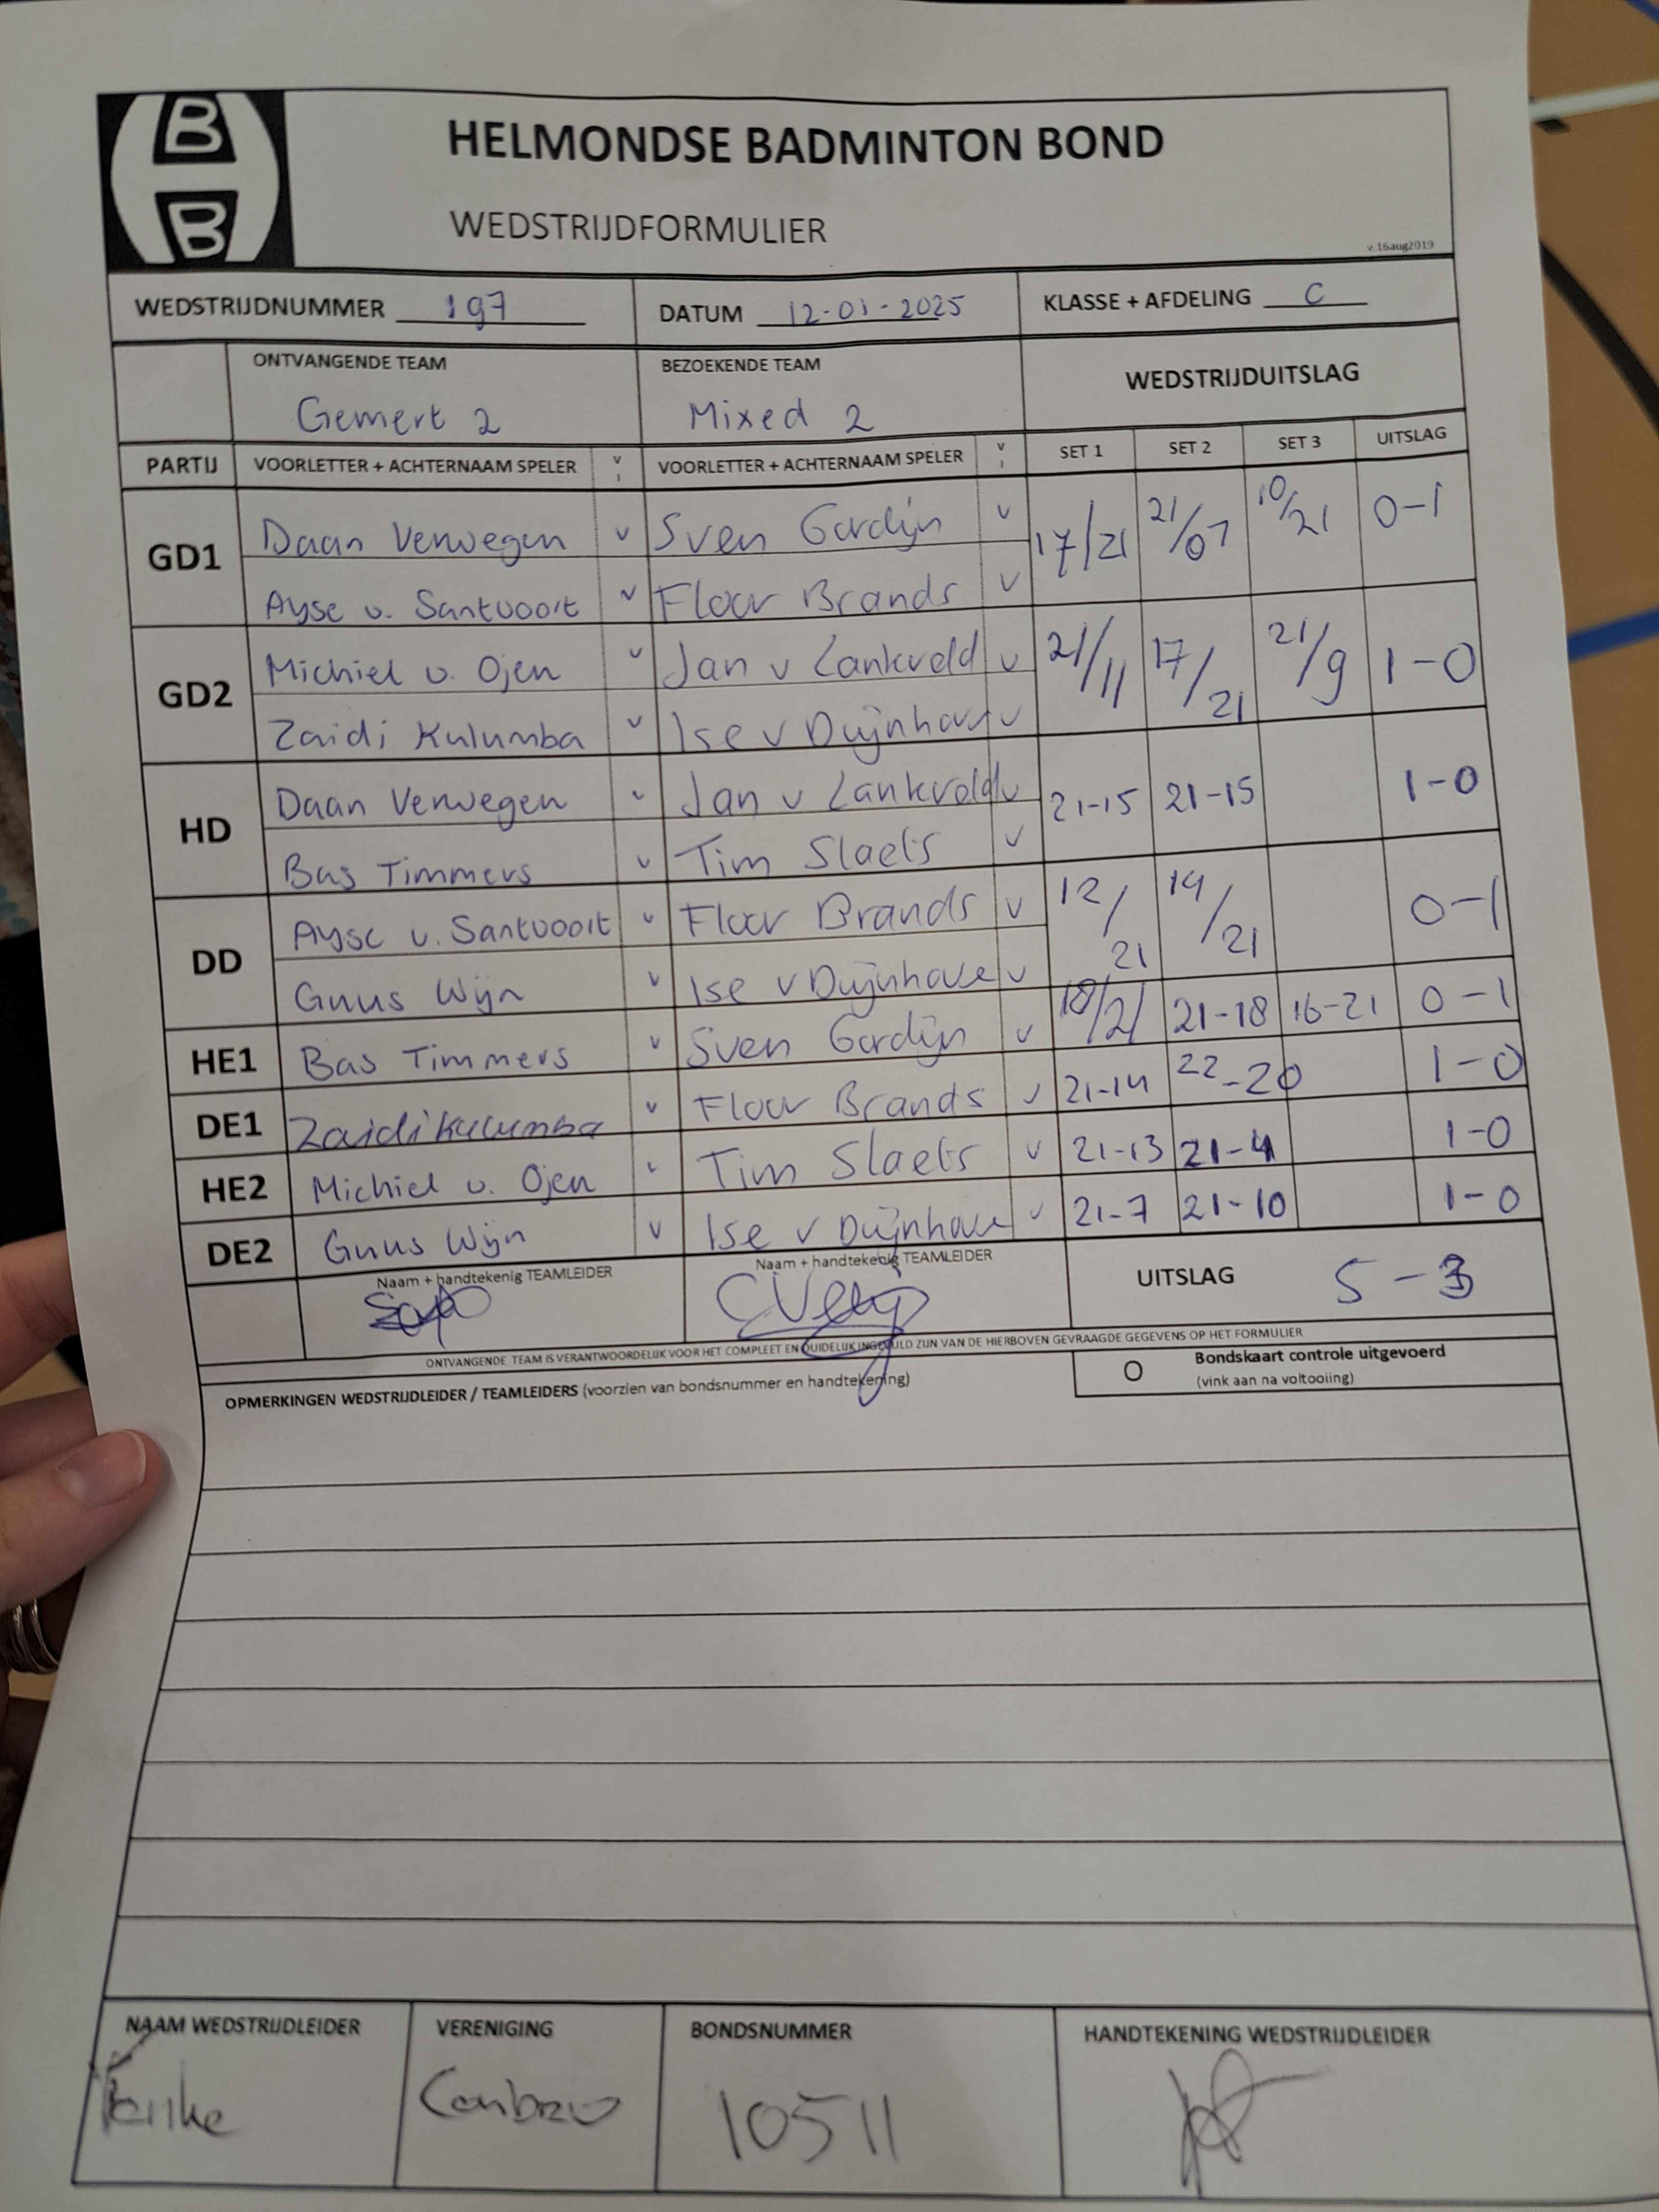 B
B
HELMONDSE BADMINTON BOND
WEDSTRIJDFORMULIER
v.16aug2019
WEDSTRIJDNUMMER 197 DATUM 12-01-2025 KLASSE + AFDELING C
ONTVANGENDE TEAM BEZOEKENDE TEAM WEDSTRIJDUITSLAG
Gemert 2 Mixed 2
PARTIJ VOORLETTER + ACHTERNAAM SPELER V I VOORLETTER + ACHTERNAAM SPELER V I SET 1 SET 2 SET 3 UITSLAG
GD1 Daan Verwegen v Sven Gordijn v 17/21 21/07 10/21 0-1
Ayse v. Santvoort v Floor Brands v
GD2 Michiel v. Ojen v Jan v Lankveld v 21/11 17/21 21/9 1-0
Zaidi Kulumba v Ise v Duijnhove v
HD Daan Verwegen v Jan v Lankveld v 21-15 21-15 1-0
Bas Timmers v Tim Slaets v
DD Ayse v. Santvoort v Floor Brands v 12/21 14/21 0-1
Guus Wijn v Ise v Duijnhove v
HE1 Bas Timmers v Sven Gordijn v 18/21 21-18 16-21 0-1
DE1 Zaidi Kulumba v Floor Brands v 21-14 22-20 1-0
HE2 Michiel v. Ojen v Tim Slaets v 21-13 21-4 1-0
DE2 Guus Wijn v Ise v Duijnhove v 21-7 21-10 1-0
Naam + handtekenig TEAMLEIDER Naam + handtekenig TEAMLEIDER UITSLAG 5-3
ONTVANGENDE TEAM IS VERANTWOORDELIJK VOOR HET COMPLEET EN DUIDELIJK INGEVULD ZIJN VAN DE HIERBOVEN GEVRAAGDE GEGEVENS OP HET FORMULIER
OPMERKINGEN WEDSTRIJDLEIDER / TEAMLEIDERS (voorzien van bondsnummer en handtekening) O Bondskaart controle uitgevoerd
(vink aan na voltooiing)
NAAM WEDSTRIJDLEIDER VERENIGING BONDSNUMMER HANDTEKENING WEDSTRIJDLEIDER
10511